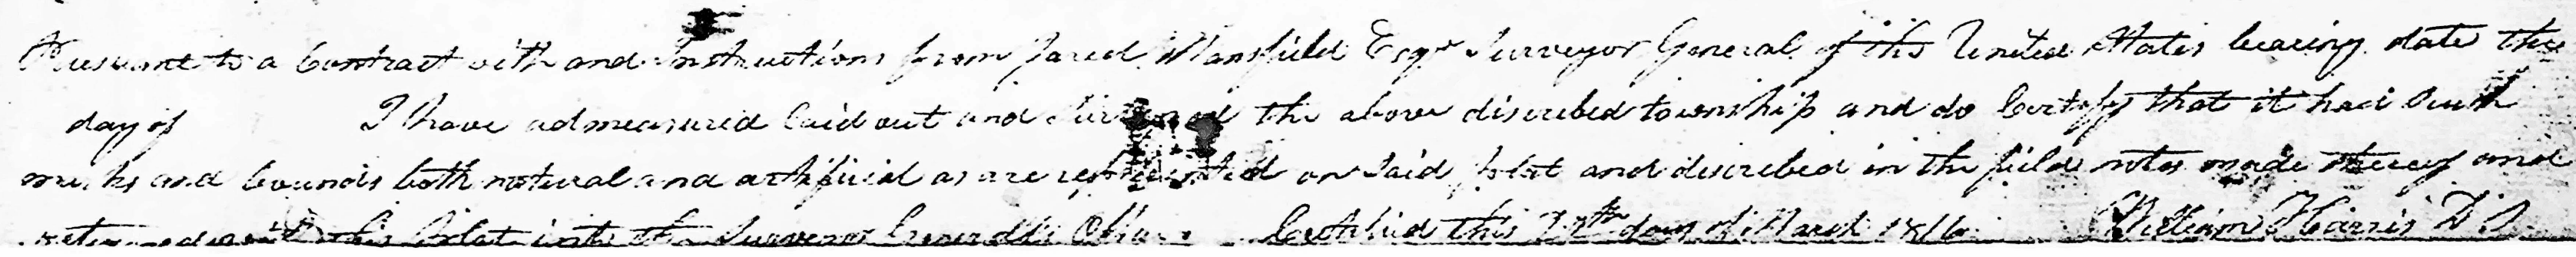 Pursuant to a Contract with and Instructions from Jared Mansfield Esqr Surveyor General of the United States bearing date the
day of I have admeasured laid out and Surveyed the above discribed township and do Certify that it had Such
marks and bounds both natural and artificial as are represented on Said plat and discribed in the field notes made thereof and
returned with this Plat into the Surveyor Generals Office Certified this day of March William Harris D S